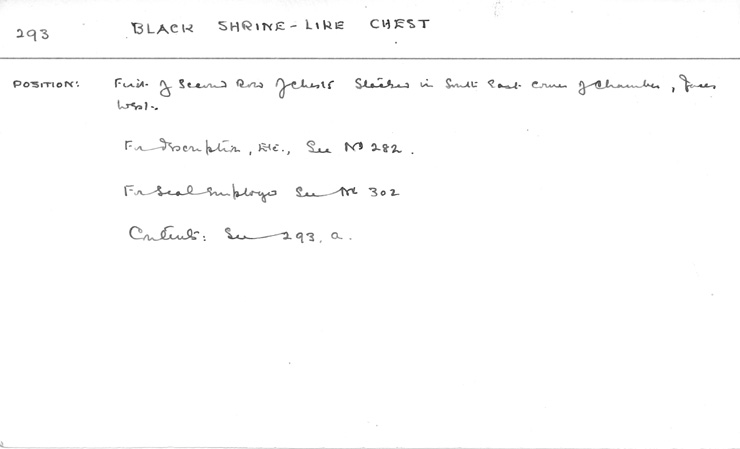 293
BLACK SHRINE-LIKE CHEST
POSITION: First of Second Row of chests stacked in South East corner of Chamber, faces
West.
For description, Etc., See No 282.
For Seal employed See No 302
Contents: See 293, a.